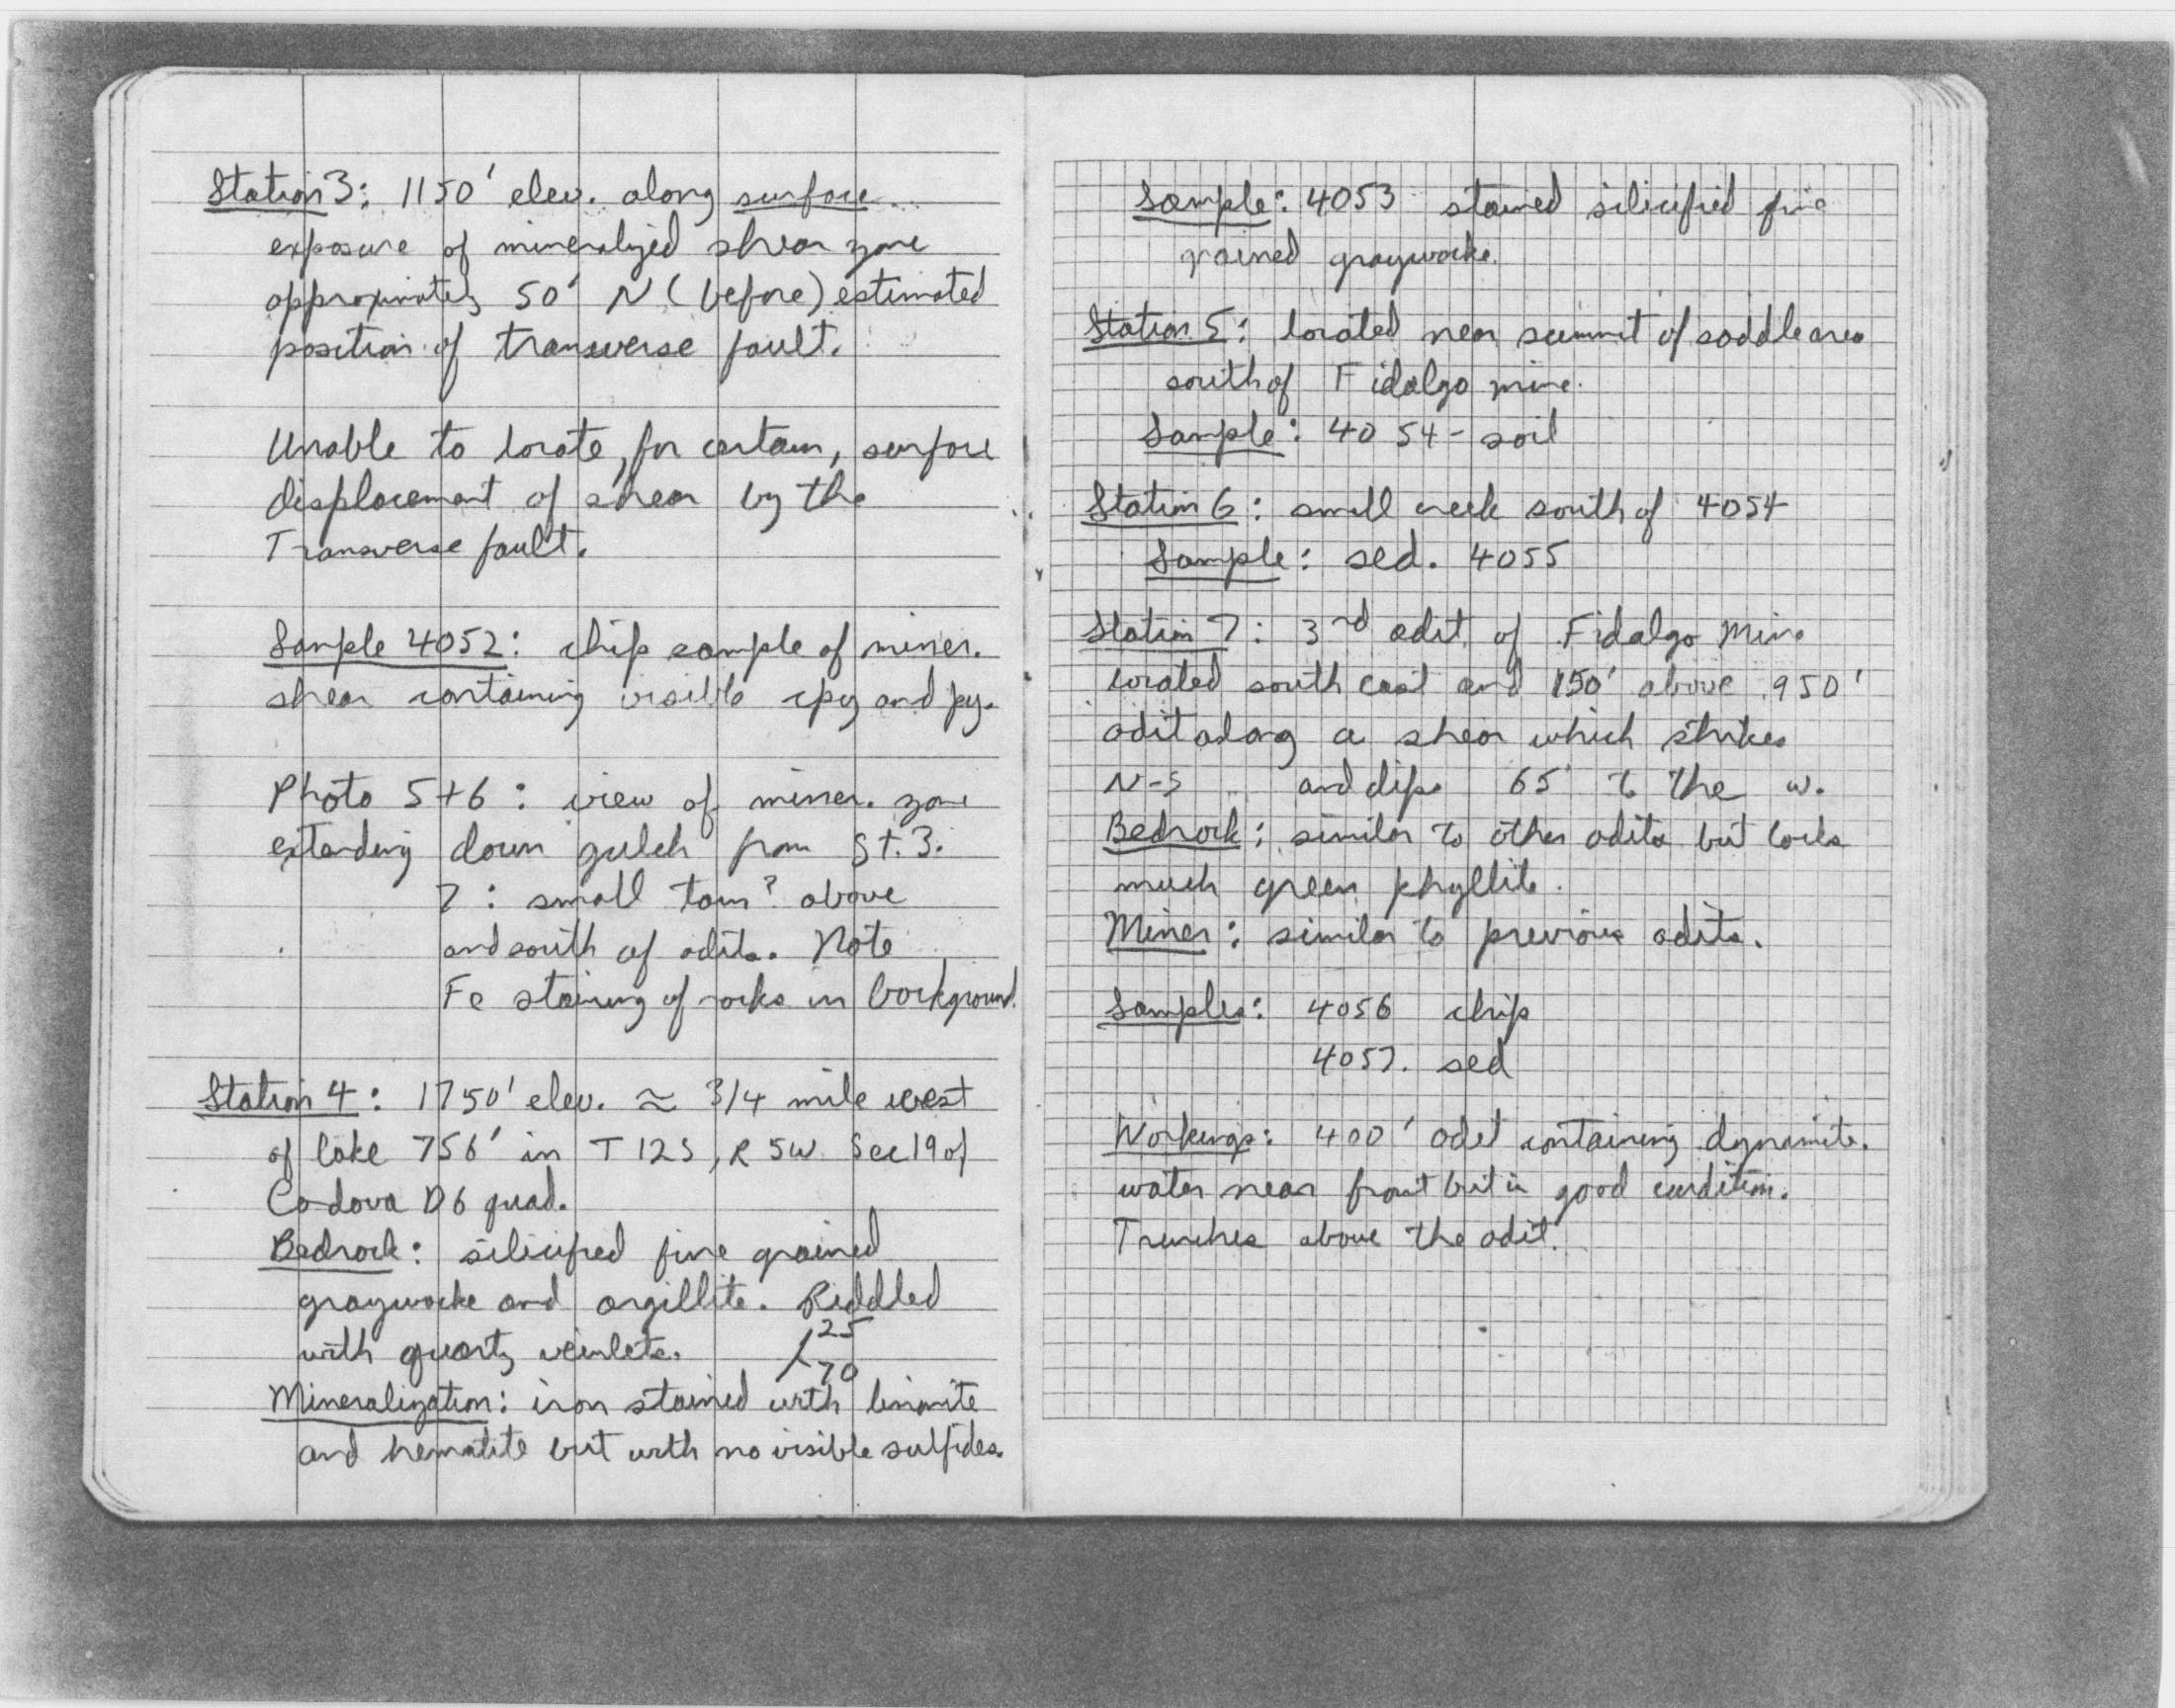 Station 3: 1150' elev. along surface
exposure of mineralized shear zone
approximately 50' N (before) estimated
position of transverse fault.
Unable to locate, for certain, surface
displacement of shear by the
Transverse fault.
Sample 4052: chip sample of miner.
shear containing visible cpy and py.
Photo 5+6: view of miner. zone
extending down gulch from St. 3.
7: small tarn? above
and south of adits. Note
Fe staining of rocks in background.
Station 4: 1750' elev. ≈ 3/4 mile west
of lake 756' in T12S, R5W Sec 19 of
Cordova D6 quad.
Bedrock: silicified fine grained
graywacke and argillite. Riddled
with quartz veinlets. 25
70
Mineralization: iron stained with limonite
and hematite but with no visible sulfides.
Sample: 4053 stained silicified fine
grained graywacke.
Station 5: located near summit of saddle area
south of Fidalgo mine.
Sample: 4054 - soil
Station 6: small creek south of 4054
Sample: sed. 4055
Station 7: 3rd adit of Fidalgo Mine
located south east and 150' above 950'
adit along a shear which strikes
N-S and dips 65° to the w.
Bedrock: similar to other adits but lacks
much green phyllite.
Miner: similar to previous adits.
Samples: 4056 chip
4057. sed
Workings: 400' adit containing dynamite.
water near front but in good condition.
Trenches above the adit.